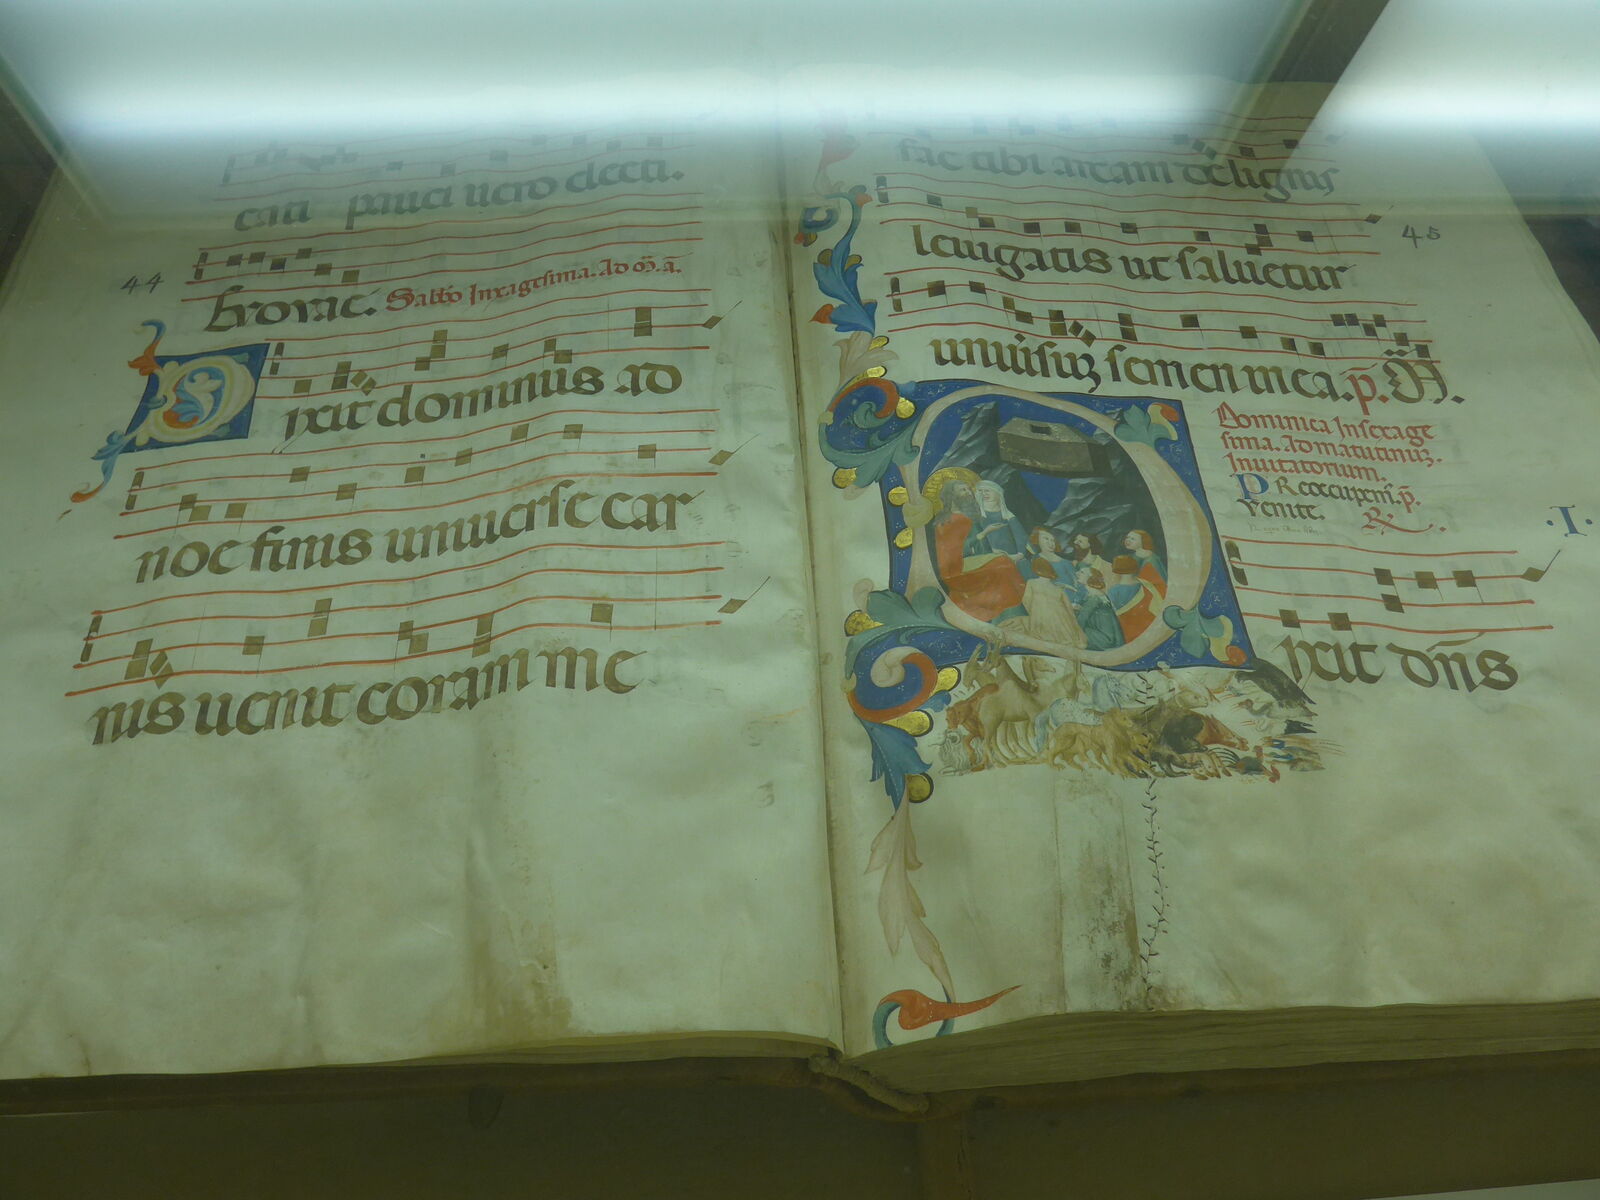 cati pauci uero electi.
44
Evovae. Sabbo Inxagesima. Ad m̄. a.
Dixit dominus ad
noe finis uniuerse car
nis uenit coram me
fac tibi arcam de lignis
45
leuigatis ut saluetur
uniuersuꝫ semen in ea. p.
Dominica Insexage
sima. Ad matutinuꝫ.
Inuitatorium.
PReoccupem̄. p.
Venite. R
·I·
Dixit dn̄s